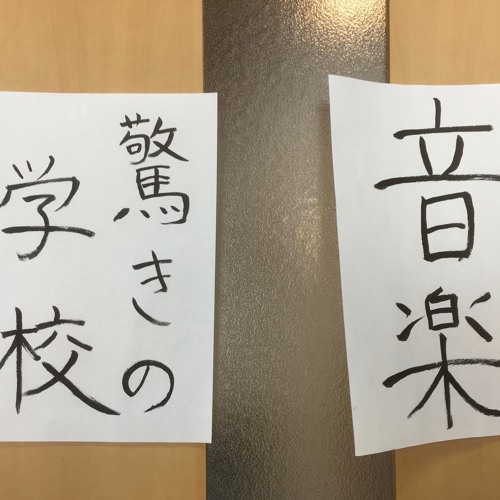 音楽
驚きの
学校